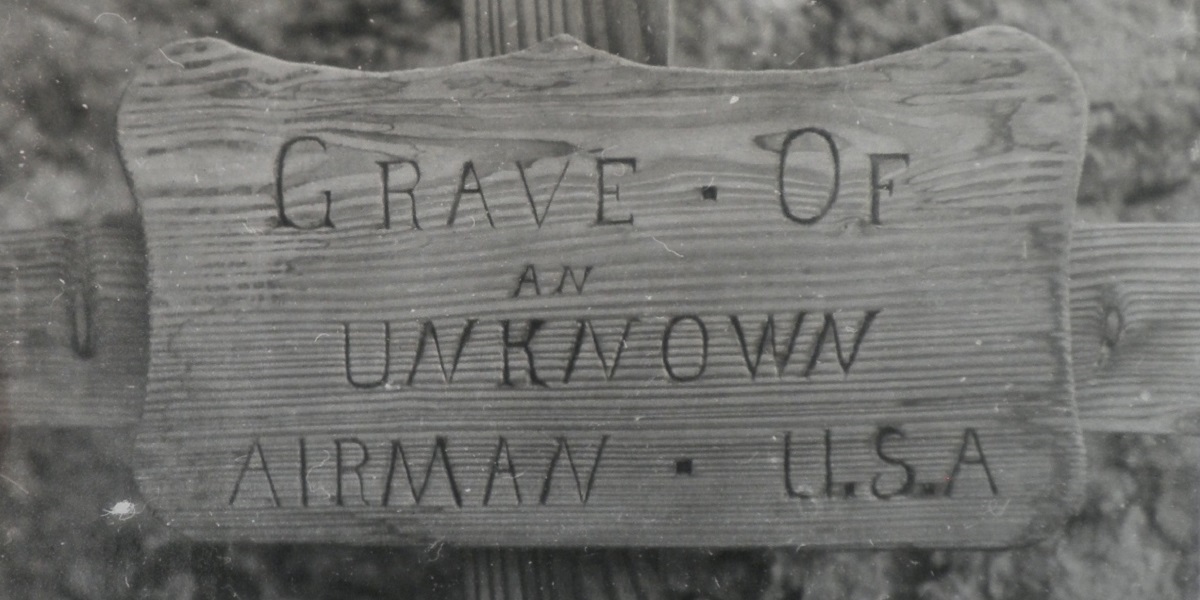 GRAVE ▪ OF
AN
UNKNOWN
AIRMAN ▪ U.S.A